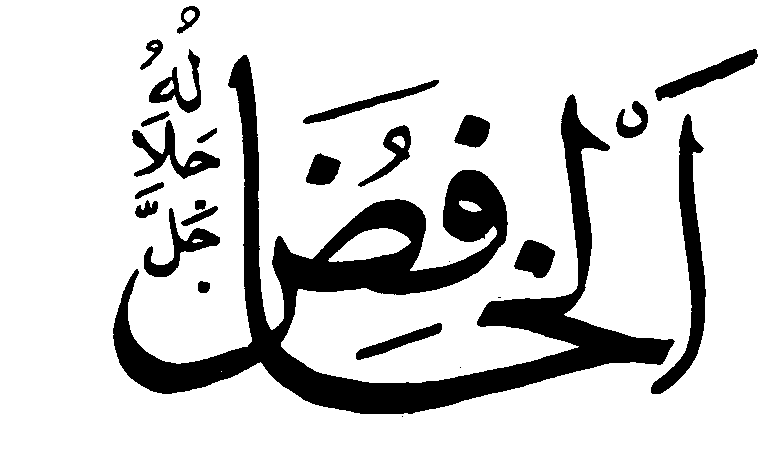 اَلْخَافِضُ
جَلَّ جَلَالُهُ